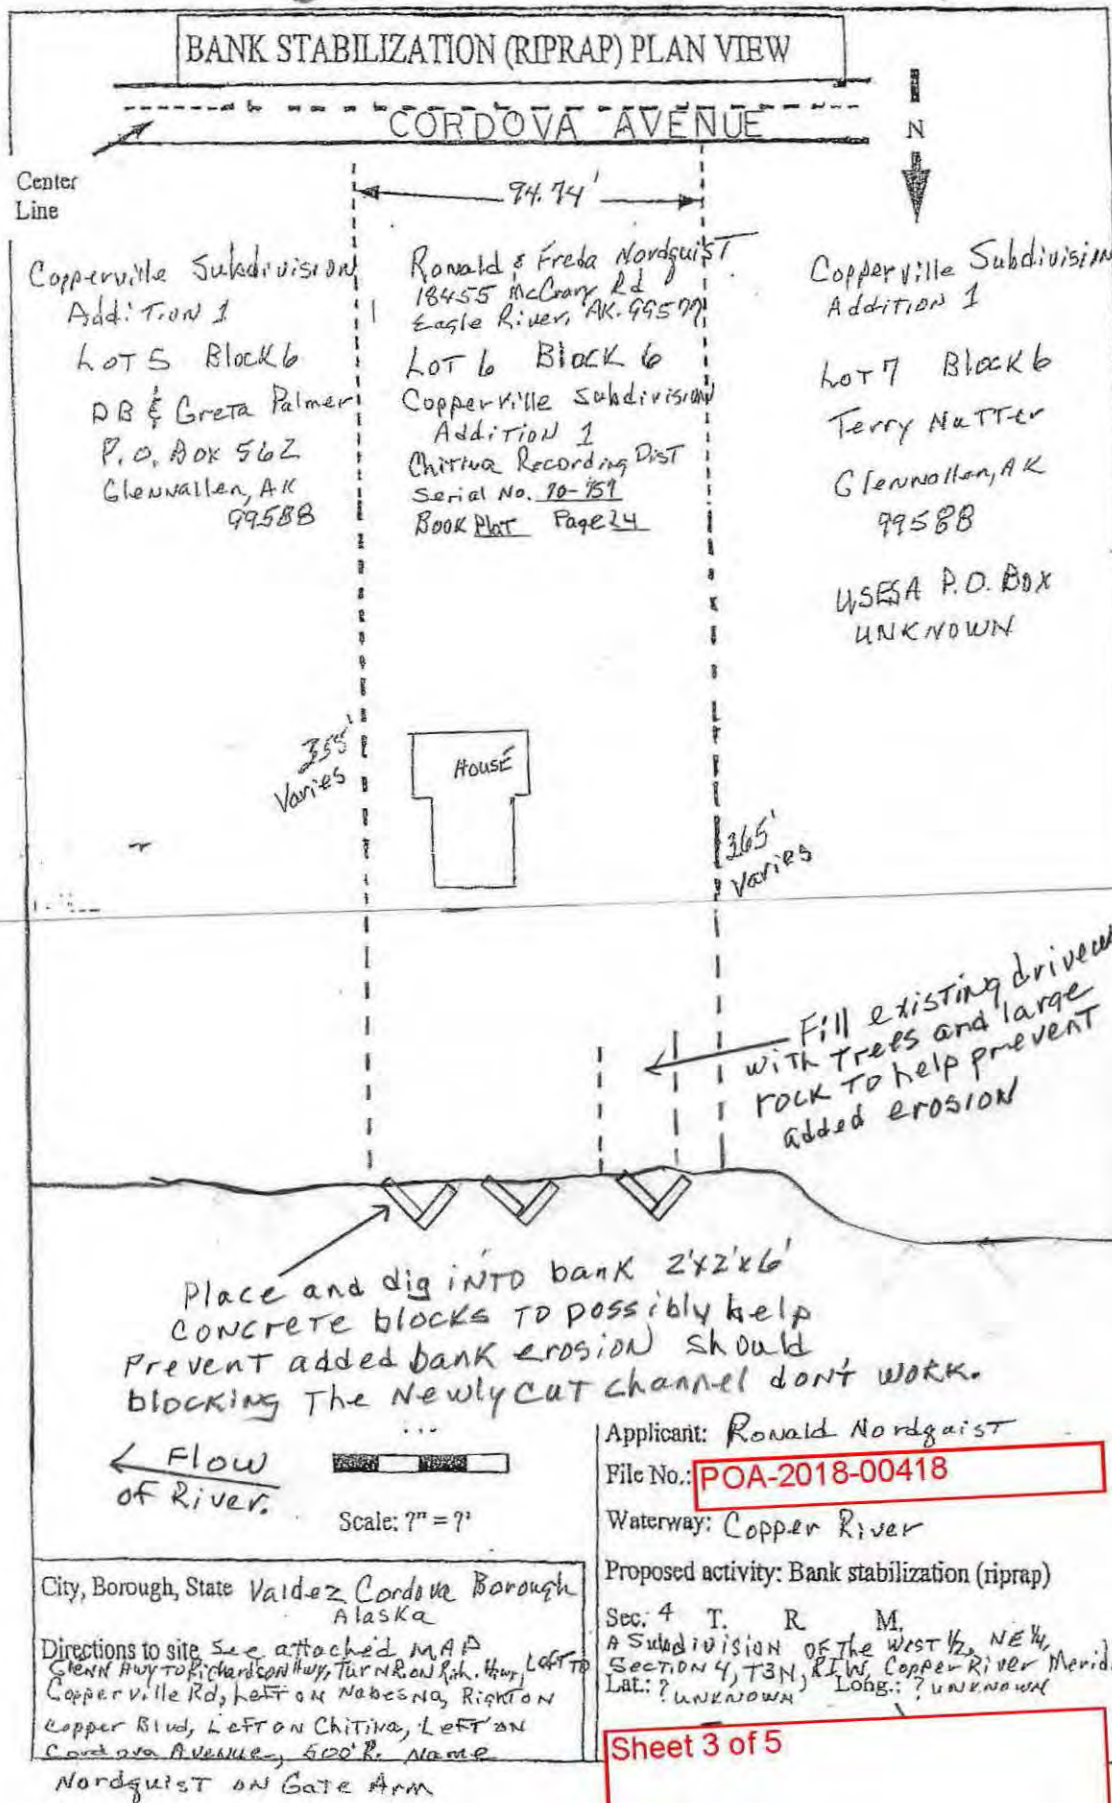 BANK STABILIZATION (RIPRAP) PLAN VIEW
CORDOVA AVENUE
N
Center
Line
94.74'
Copperville Subdivision
Addition 1
Lot 5 Block 6
DB & Greta Palmer
P.O. Box 562
Glennallen, AK
99588
Ronald & Freda Nordquist
18455 McCrary Rd
Eagle River, AK. 99577
Lot 6 Block 6
Copperville Subdivision
Addition 1
Chitina Recording Dist
Serial No. 70-759
Book Plat Page 24
Copperville Subdivision
Addition 1
Lot 7 Block 6
Terry Nutter
Glennallen, AK
99588
P.O. Box
UNKNOWN
355'
Varies
House
365'
Varies
Fill existing
with Trees and large
rock To help prevent
added erosion
Place and dig iNTO bank 2'x2'x6'
CONCRETE blocks TO possibly help
Prevent added bank erosion should
blocking The Newly CUT channel dont work.
Flow
of River.
Scale: ?" = ?'
Applicant: Ronald Nordquist
File No.: POA-2018-00418
Waterway: Copper River
Proposed activity: Bank stabilization (riprap)
Sec. 4 T. R. M.
A Subdivision of the West 1/2, NE 1/4,
Section 4, T3N, R1W, Copper River
Lat.: ? UNKNOWN Long.: ? UNKNOWN
Sheet 3 of 5
City, Borough, State Valdez Cordova Borough
Alaska
Directions to site See attached MAP
Glenn Hwy To Richardson Hwy, Turn R on Rich. Hwy, Left To
Copperville Rd, Left on Nabesna, Right on
Copper Blvd, Left on Chitina, Left on
Cordova Avenue, 500' R. Name
Nordquist on Gate Arm